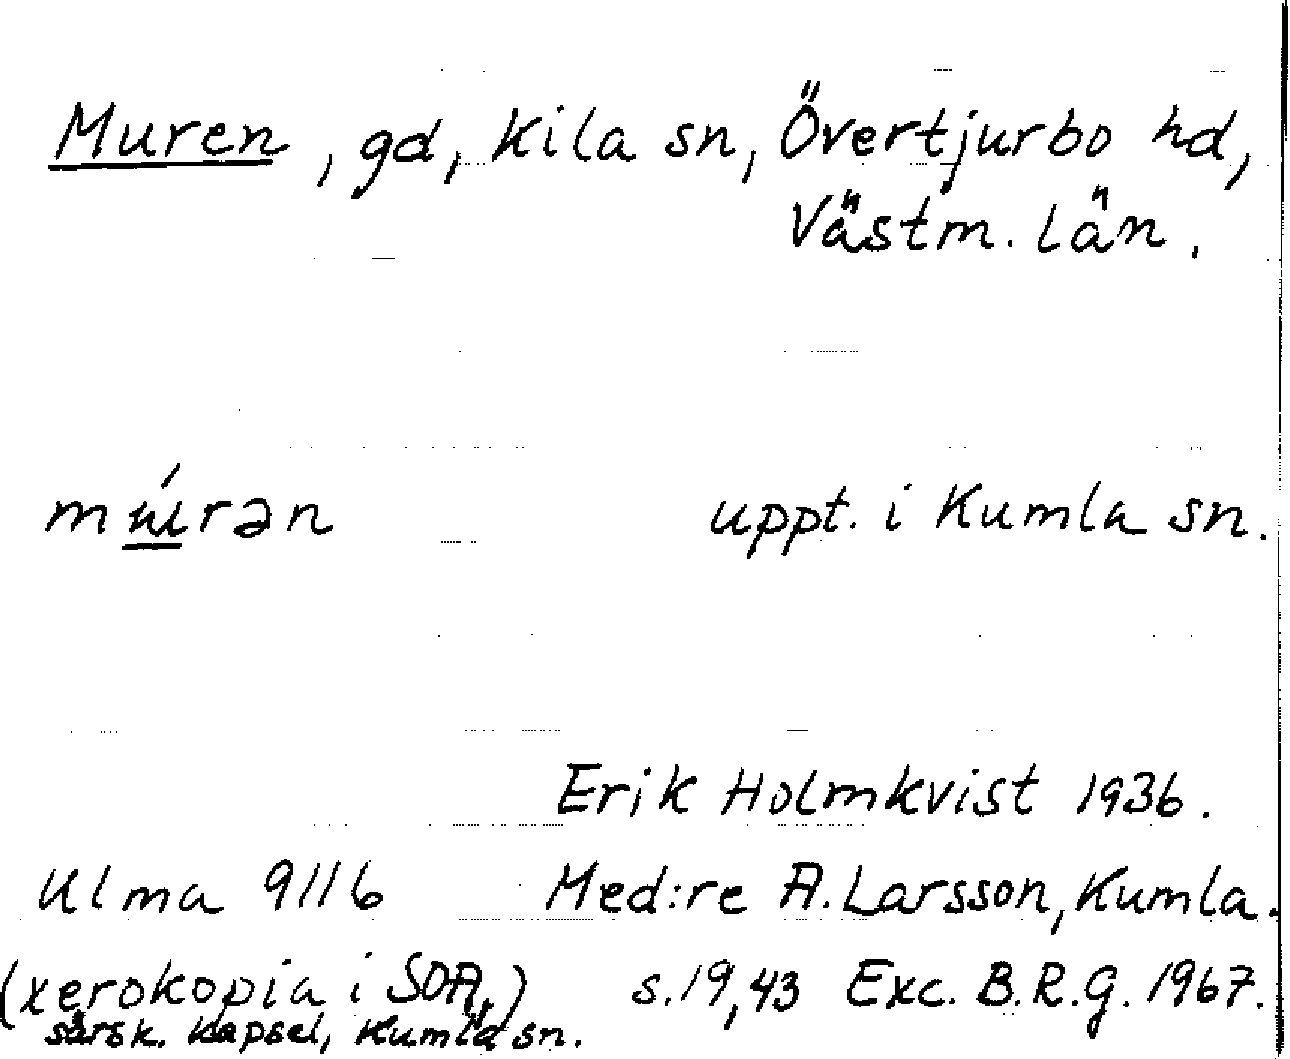 Muren, gd, Kila sn, Övertjurbo hd,
Västm. län.
múrən uppt. i Kumla sn.
Erik Holmkvist 1936.
Ulma 9116 Med:re A. Larsson, Kumla.
(xerokopia i SOA,) s. 19, 43 Exc. B.R.G. 1967.
särsk. kapsel, Kumla sn.